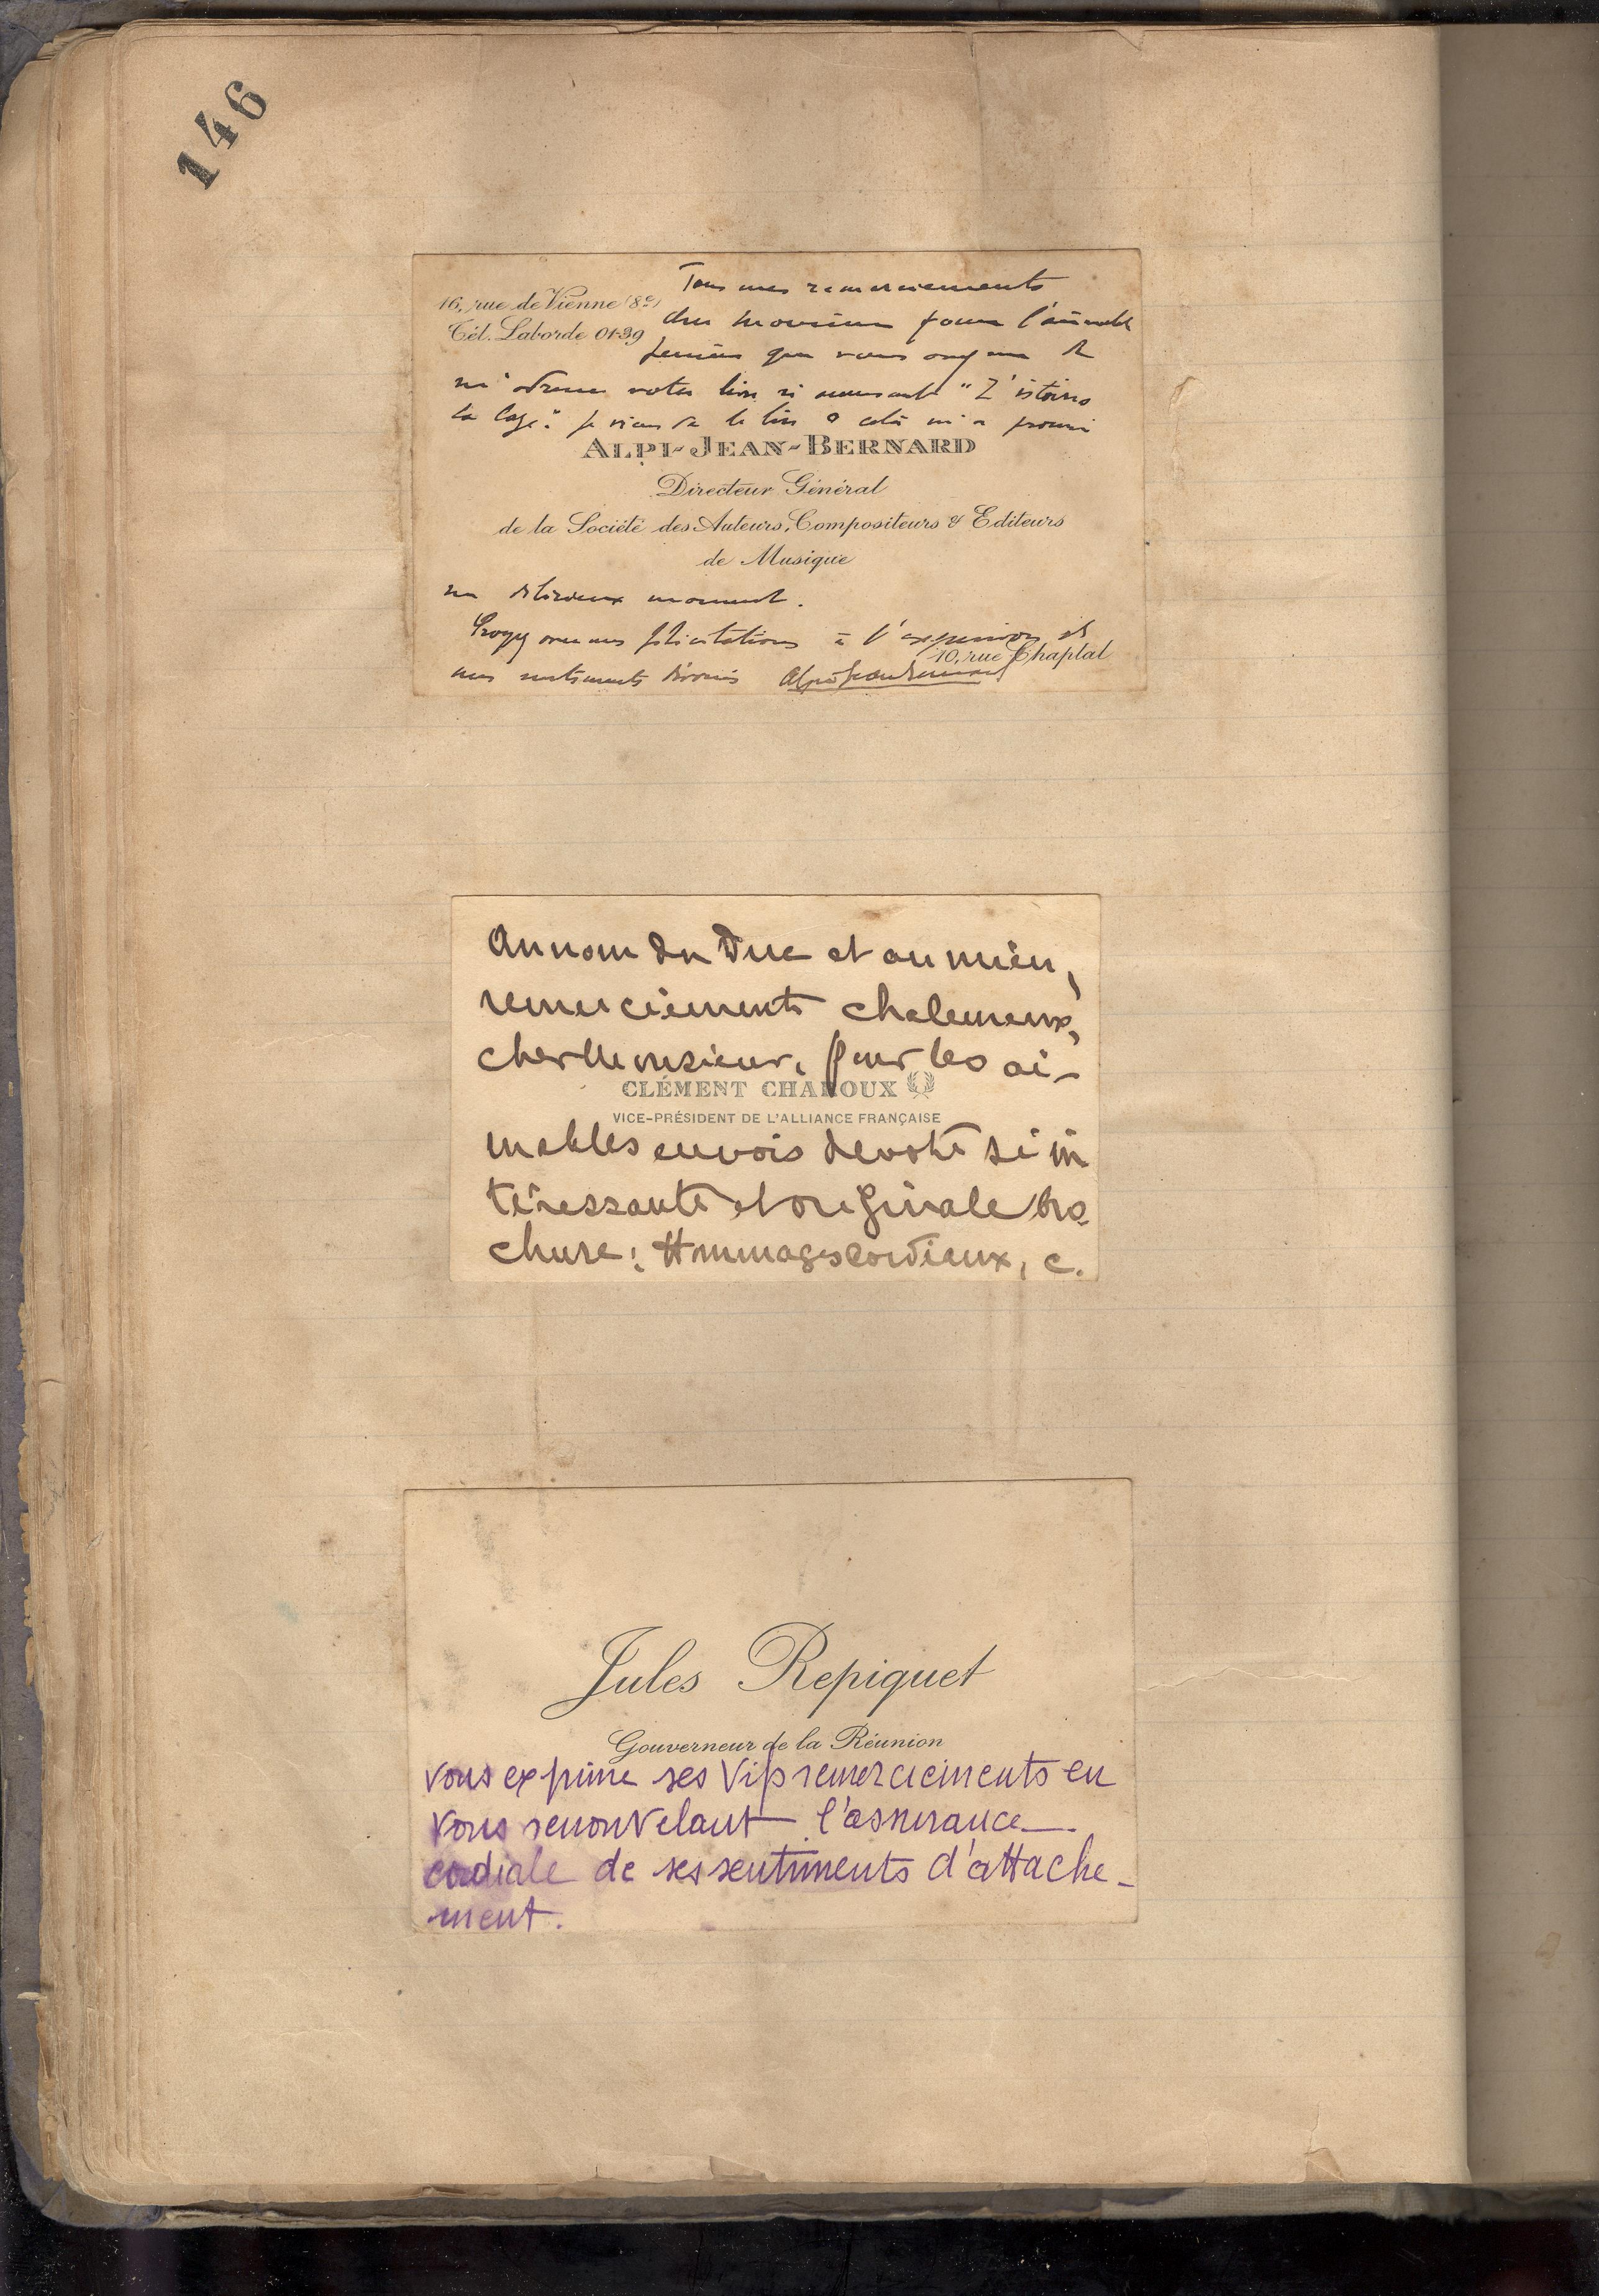 146
Tous mes remerciements
16, rue de Vienne (8e)
Tél. Laborde 01-39
cher Monsieur pour l'aimable
pensée que vous avez eue de
m'adresser votre livre si amusant "Z'istoires
la caze". Je viens de le lire & cela m'a procuré
ALPI-JEAN-BERNARD
Directeur Général
de la Société des Auteurs, Compositeurs & Editeurs
de Musique
un délicieux moment.
Croyez avec mes félicitations à l'expression de
10, rue Chaptal
mes sentiments dévoués AlpiJeanBernard
Au nom du Duc et au mien,
remerciements chaleureux,
cher Monsieur, pour les ai-
CLÉMENT CHAROUX
VICE-PRÉSIDENT DE L'ALLIANCE FRANÇAISE
mables envois de votre si in
téressante et originale bro-
chure: Hommages cordieux, C.
Jules Repiquet
Gouverneur de la Réunion
vous exprime ses vifs remerciements en
vous renouvelant l'assurance
cordiale de ses sentiments d'attache-
ment.